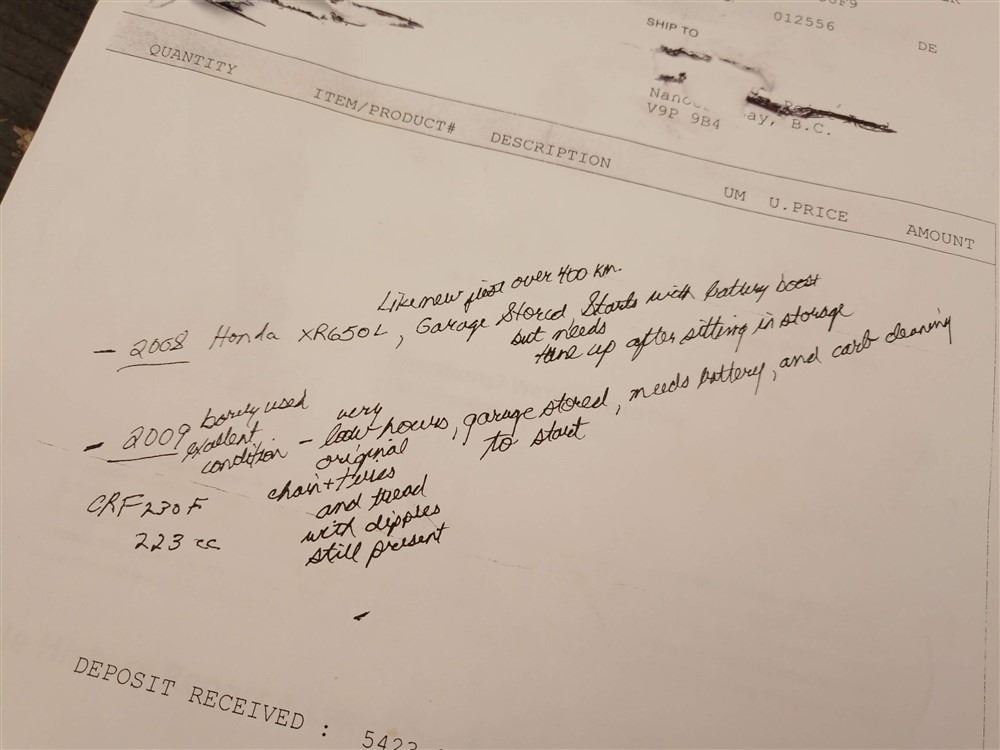 012556
DE
SHIP TO
ay, B.C.
V9P 9B4
QUANTITY ITEM/PRODUCT# DESCRIPTION UM U.PRICE AMOUNT
Like new just over 400 km.
- 2008 Honda XR650L, Garage Stored Starts with battery boost
but needs
tune up after sitting in storage
- 2009 barely used very
exallent - low hours, garage stored, needs battery, and carb cleaning
condition original to start
CRF230F chain + tires
223 cc and tread
with dipples
still present
DEPOSIT RECEIVED : 5423